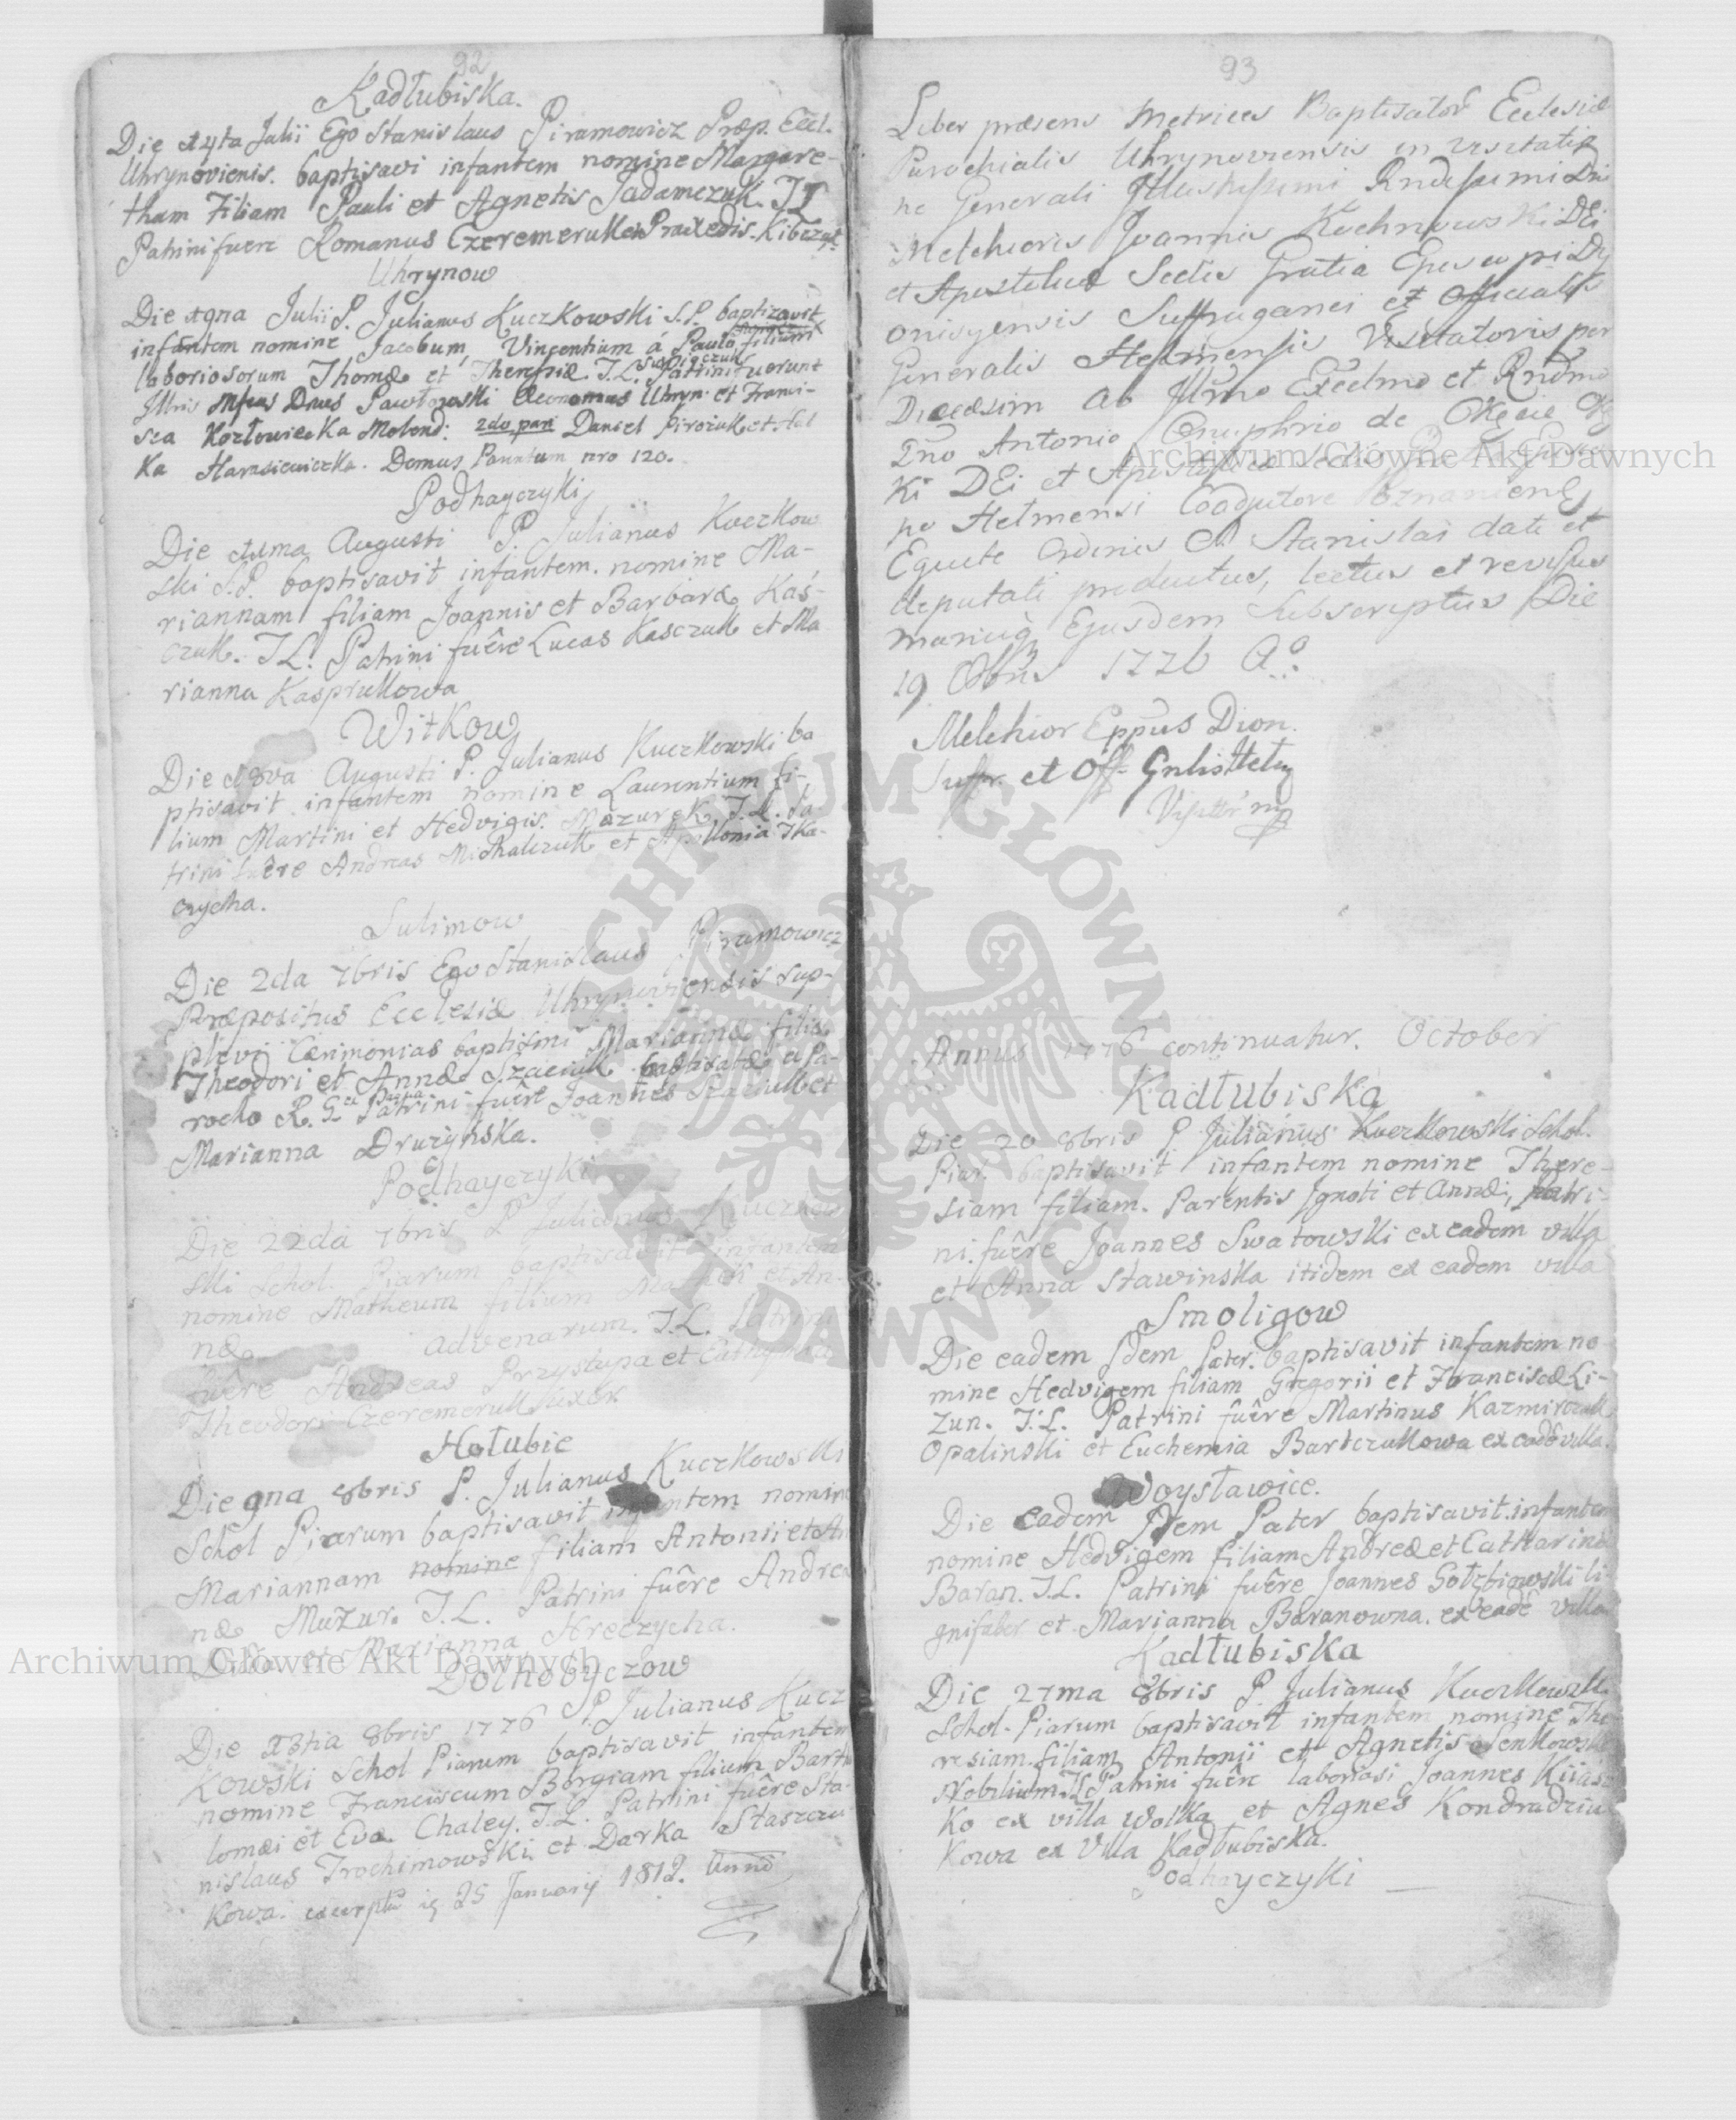 92
Kadłubiska.
Die Julii Ego Stanislaus Piramowicz Præp. Eccl.
Uhrynovienis. baptisavi infantem nomine Margare-
tham Filiam Pauli et Agnetis Jadamczuk. J L
Patrini fuere Romanus Czeremeruk et Praxedis
Uhrynow
Die Julii P. Julianus Kuczkowski S.P. baptizavit
infantem nomine Jacobum, Vincentium á Paulo filium
laboriosorum Thomæ et Theresiæ J.L. Patrini fuerunt
Dnus Pawłowski Œconomus Uhryn. et Franci-
sca Kozłowiecka Molend: 2do pari Daniel Piroziuk et
ka Harasiewiczka. Domus nro 120.
Podhayczyki
Die Augusti P. Julianus Kuczkow
ski S.P. baptisavit infantem nomine Ma-
riannam filiam Joannis et Barbaræ Kaś-
czuk. J L. Patrini fuêre Lucas Kasczuk et Ma
rianna Kasprukowa
Witkow
Die Augusti P. Julianus Kuczkowski ba
ptisavit infantem nomine Laurentium fi-
lium Martini et Hedvigis Mazurek. J. L. Pa-
trini fuêre Andreas Michalczuk et Apollonia Tka-
czycha.
Sulimow
Die 2da 7bris Ego Stanislaus Piramowicz
Præpositus Ecclesiæ Uhrynoviensis sup-
plevi Cærimonias baptismi Mariannæ filiæ
Theodori et Annæ Szaciuk baptisatæ a Pa-
rocho R. G. Patrini fuêre Joannes Szaciuk et
Marianna Drużyńska.
Podhayczyki
Die 22da 7bris P. Julianus Kuczkow
ski Schol. Piarum baptisavit infantem
nomine Matheum filium et An-
næ advenarum. J.L. Patrini
fuêre Andreas Przystupa et
Theodori Czeremeruk uxor
Hołubie
Die 9na 8bris P. Julianus Kuczkowski
Schol Piarum baptisavit infantem nomine
Mariannam nomine filiam Antonii et An
næ Mazur. J.L. Patrini fuêre Andreas
et Marianna Hreczycha.
Dołhobyczow
Die 8bris 1776 P. Julianus Kucz
kowski Schol Piarum baptisavit infantem
nomine Franciscum Borgiam filium Barth
lomæi et Evæ Chaley. J.L. Patrini fuêre Sta-
nislaus Trochimowski et Darka Staszczu
kowa. 25 January 1812. Anno
93
Liber præsens Metrices Baptisator Ecclesiæ
Parochialis Uhrynoviensis in Visitatio
ne Generali Illustrissimi Rndissimi Dni
Melchioris Joannis Kochnowski DEi
et Apostolicæ Sedis Gratia Episcopi Dy
onisyensis Suffraganei et Officialis
Generalis Helmensis Visitatoris per
Diæcesim ab Illmo Excelmo et Rndmo
Dno Antonio Onuphrio de Okęcie
ki DEi et Apostolicæ Sedis
po Helmensi Coadjutore
Equite Ordinis S. Stanislai dati et
deputati productus, lectus et revisus
manuq Ejusdem Subscriptus Die
19 1776 Ao.
Melchior Eppus Dion.
Suffr. et Off.
Annus 1776 continuatur. October
Kadłubiska
Die 20 8bris P Julianus Kuczkowski Schol.
Piar. baptisavit infantem nomine There-
siam filiam. Parentis Ignoti et Annæ, Patri-
ni fuêre Joannes Swatowski ex eadem villa
et Anna Stawinska itidem ex eadem villa
Smoligow
Die eadem Idem Pater baptisavit infantem no
mine Hedvigem filiam Gregorii et Franciscæ Li-
zun. J.L. Patrini fuêre Martinus Kazmirczuk
Opalinski et Euchemia Bartczukowa ex villa.
Woysławice.
Die eadem Idem Pater baptisavit infantem
nomine Hedvigem filiam Andreæ et Catharinæ
Baran. J.L. Patrini fuêre Joannes Gołębiowski li-
gnifaber et Marianna Baranowna. ex villa
Kadłubiska
Die 27ma 8bris P. Julianus Kuczkowski
Schol. Piarum baptisavit infantem nomine The
resiam filiam Antonii et Agnetis
Nobilium. Patrini fuêre laboriosi Joannes
ko ex villa Wolka et Agnes Kondradziu
kowa ex Villa Kadłubiska.
Podhayczyki
Archiwum Główne Akt Dawnych
Archiwum Główne Akt Dawnych
ARCHIWUM GŁÓWNE
AKT DAWNYCH